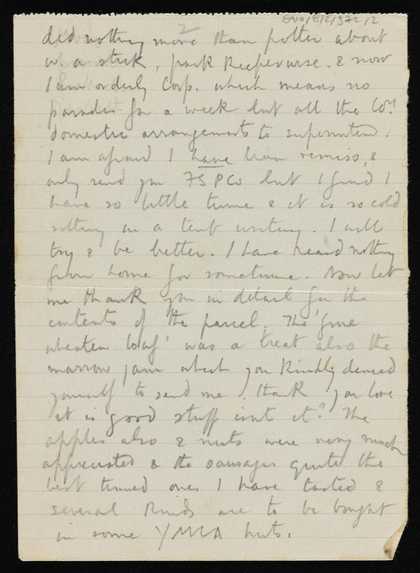 2
ENO/6/2/372/2
did nothing more than potter about
w a stick, park keeperwise. & now
I am orderly Corp. which means no
parades for a week but all the Co's
domestic arrangements to superintend.
I am afraid I have been remiss, &
only send you FSPCs but I find I
have so little time & it is so cold
sitting in a tent writing. I will
try & be better. I have heard nothing
from home for sometime. Now let
me thank you in detail for the
contents of the parcel. The 'fine
wheaten loaf' was a treat also the
marrow jam which you kindly denied
yourself to send me, thank you love
it is good stuff isnt it? The
apples also & nuts were very much
appreciated & the sausages quite the
best tinned ones I have tasted &
several kinds are to be bought
in some YMCA huts.